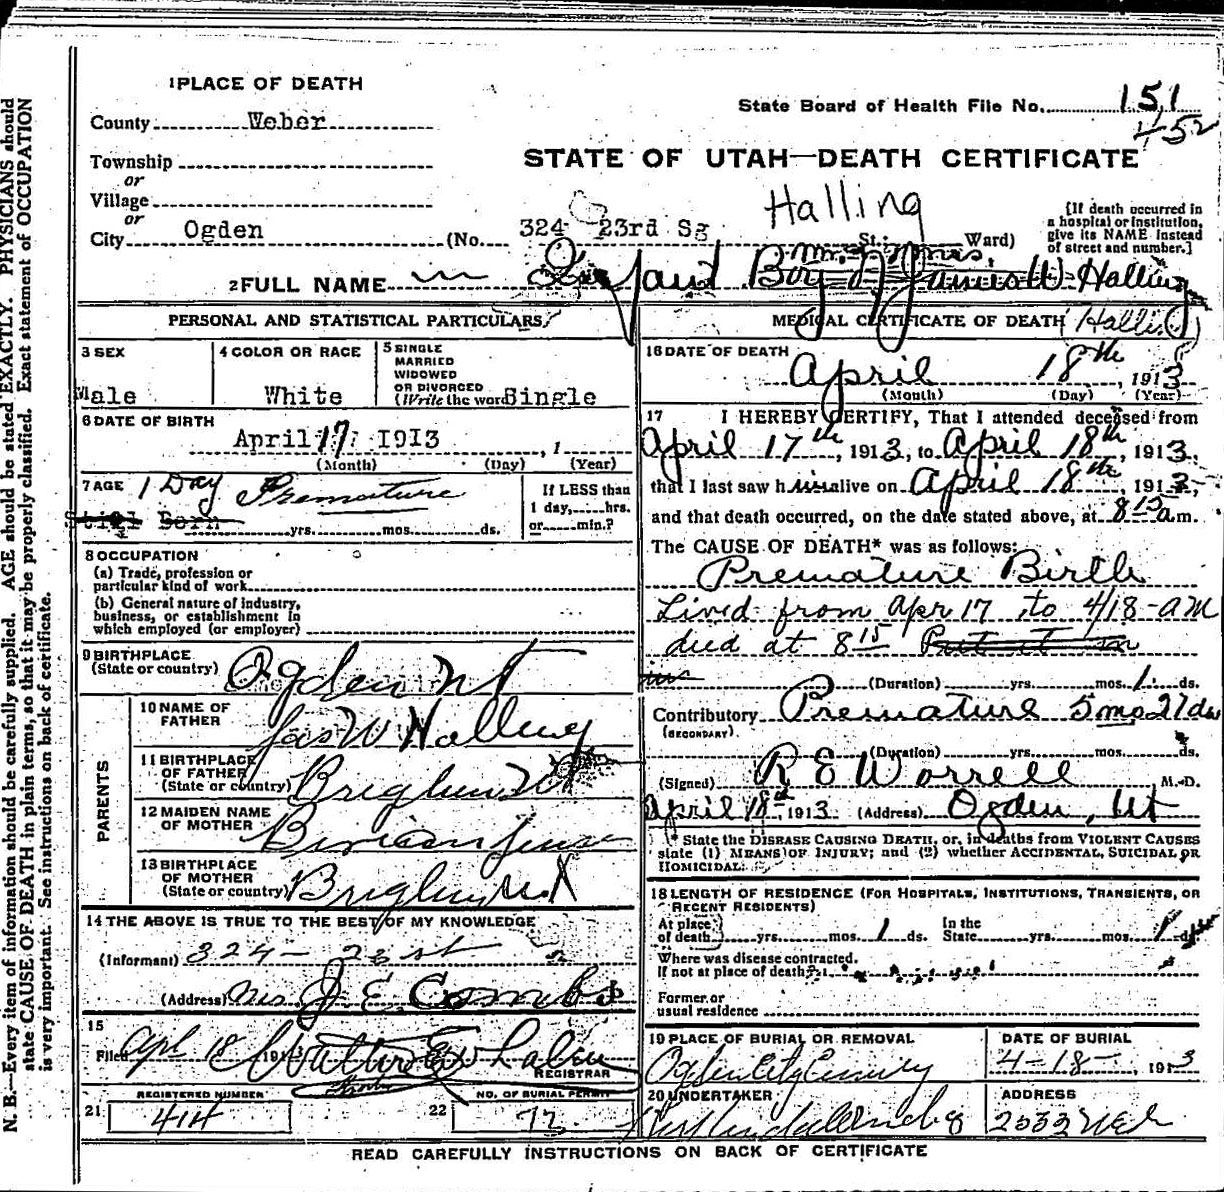 N. B.—Every item of information should be carefully supplied. AGE should be stated EXACTLY. PHYSICIANS should
state CAUSE OF DEATH in plain terms, so that it may be properly classified. Exact statement of OCCUPATION
is very important. See instructions on back of certificate.
1 PLACE OF DEATH
State Board of Health File No. 151
452
County Weber
STATE OF UTAH—DEATH CERTIFICATE
Township
or
Village
or
City Ogden (No. 324 23rd St.; Ward)
Halling
[If death occurred in
a hospital or institution,
give its NAME instead
of street and number.]
2 FULL NAME Infant Boy of Mr. & Mrs. James W Halling
PERSONAL AND STATISTICAL PARTICULARS
3 SEX
Male
4 COLOR OR RACE
White
5 SINGLE
MARRIED
WIDOWED
OR DIVORCED
(Write the word) Single
6 DATE OF BIRTH
April 17 1913, 1
(Month) (Day) (Year)
7 AGE 1 Day Premature
Still Born yrs. mos. ds.
If LESS than
1 day, hrs.
or min.?
8 OCCUPATION
(a) Trade, profession or
particular kind of work
(b) General nature of industry,
business, or establishment in
which employed (or employer)
9 BIRTHPLACE
(State or country) Ogden Ut
PARENTS
10 NAME OF
FATHER Jas W Halling
11 BIRTHPLACE
OF FATHER
(State or country) Brigham Ut
12 MAIDEN NAME
OF MOTHER
13 BIRTHPLACE
OF MOTHER
(State or country) Brigham Ut
14 THE ABOVE IS TRUE TO THE BEST OF MY KNOWLEDGE
(Informant) 324- 23 st
(Address) Mrs J E Combs
15
Filed Apl 18 1913 REGISTRAR
REGISTERED NUMBER
21 414
NO. OF BURIAL PERMIT
22 72
MEDICAL CERTIFICATE OF DEATH (Halling)
16 DATE OF DEATH
April 18th, 1913
(Month) (Day) (Year)
17 I HEREBY CERTIFY, That I attended deceased from
April 17th, 1913, to April 18th, 1913,
that I last saw him alive on April 18th, 1913,
and that death occurred, on the date stated above, at 8 15 a m.
The CAUSE OF DEATH* was as follows:
Premature Birth
Lived from Apr 17 to 4/18 - AM
died at 8 15
(Duration) yrs. mos. 1 ds.
Contributory Premature 5 mo 27 da
(SECONDARY)
(Duration) yrs. mos. ds.
(Signed) R E Worrell M.D.
April 18th, 1913 (Address) Ogden, Ut
* State the DISEASE CAUSING DEATH, or, in deaths from VIOLENT CAUSES
state (1) MEANS OF INJURY; and (2) whether ACCIDENTAL, SUICIDAL OR
HOMICIDAL.
18 LENGTH OF RESIDENCE (FOR HOSPITALS, INSTITUTIONS, TRANSIENTS, OR
RECENT RESIDENTS)
At place
of death yrs. mos. 1 ds. In the
State yrs. mos. 1 ds.
Where was disease contracted.
If not at place of death?
Former or
usual residence
19 PLACE OF BURIAL OR REMOVAL
Ogden City Cemetery
DATE OF BURIAL
4-18- 1913
20 UNDERTAKER
ADDRESS
READ CAREFULLY INSTRUCTIONS ON BACK OF CERTIFICATE